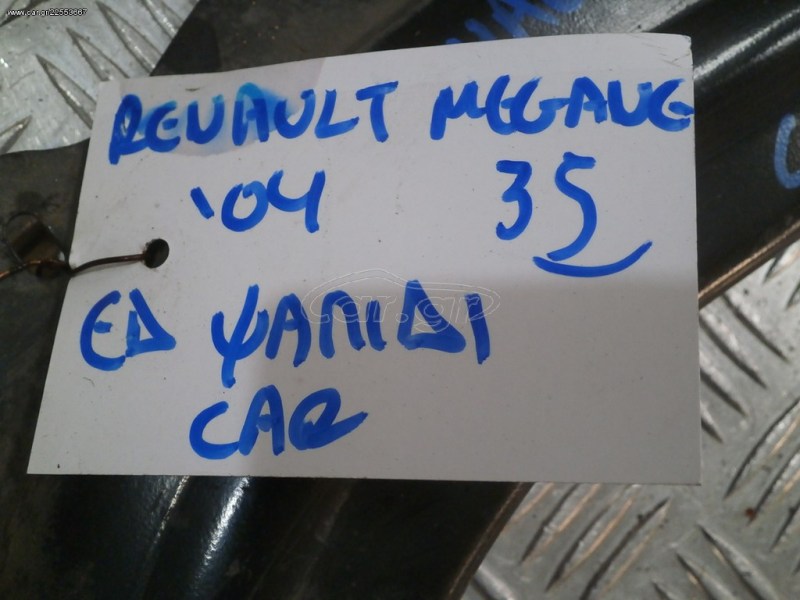 www.car.gr/22553667
RENAULT MEGANE
'04 35
ΕΔ ΨΑΛΙΔΙ
CAR
car.gr